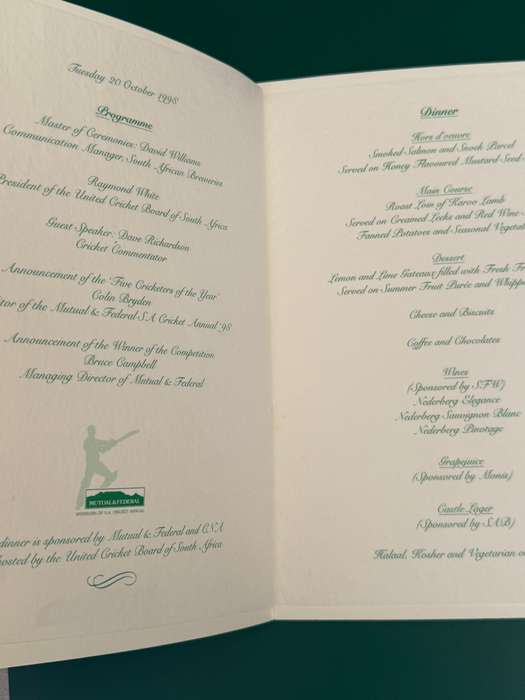 Tuesday 20 October 1998
Programme
Master of Ceremonies: David Williams
Communication Manager, South African Breweries
Raymond White
President of the United Cricket Board of South Africa
Guest Speaker: Dave Richardson
Cricket Commentator
Announcement of the 'Five Cricketers of the Year'
Colin Bryden
itor of the Mutual & Federal S.A Cricket Annual '98
Announcement of the Winner of the Competition
Bruce Campbell
Managing Director of Mutual & Federal
MUTUAL&FEDERAL
SPONSORS OF S.A. CRICKET ANNUAL
dinner is sponsored by Mutual & Federal and CNA
hosted by the United Cricket Board of South Africa
Dinner
Hors d'oeuvre
Smoked Salmon and Snoek Parcel
Served on Honey Flavoured Mustard Seed
Main Course
Roast Loin of Karoo Lamb
Served on Creamed Leeks and Red Wine
Fanned Potatoes and Seasonal Vegetab
Dessert
Lemon and Lime Gateaux filled with Fresh Fr
Served on Summer Fruit Purée and Whippe
Cheese and Biscuits
Coffee and Chocolates
Wines
(Sponsored by SFW)
Nederberg Elegance
Nederberg Sauvignon Blanc
Nederberg Pinotage
Grapejuice
(Sponsored by Monis)
Castle Lager
(Sponsored by SAB)
Halaal, Kosher and Vegetarian on